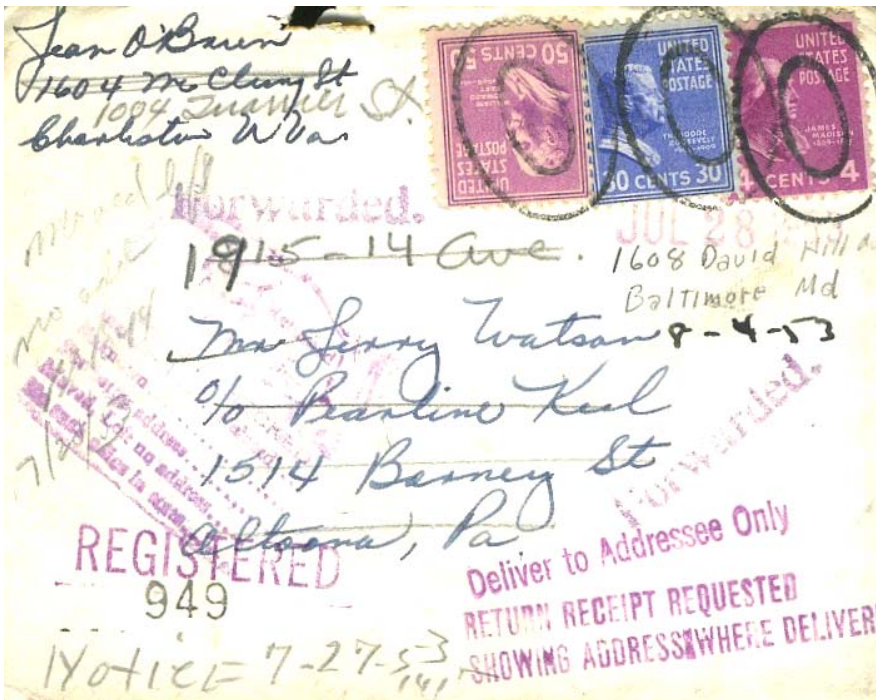 Jean O'Barin
1604 McClung St
1004 St.
Charleston W Va
50 CENTS 50
UNITED
STATES
POSTAGE
UNITED
STATES
POSTAGE
THEODORE
ROOSEVELT
30 CENTS 30
UNITED
STATES
POSTAGE
JAMES
MADISON
4 CENTS 4
Forwarded.
JUL 28
1915-14 Ave.
1608 David Hill
Baltimore Md
8-4-53
Mr Jerry Watson
c/o Pearline Keel
1514 Barney St
Altoona, Pa
Forwarded.
no address
REGISTERED
949
Deliver to Addressee Only
RETURN RECEIPT REQUESTED
SHOWING ADDRESS WHERE DELIVER
Notice 7-27-53